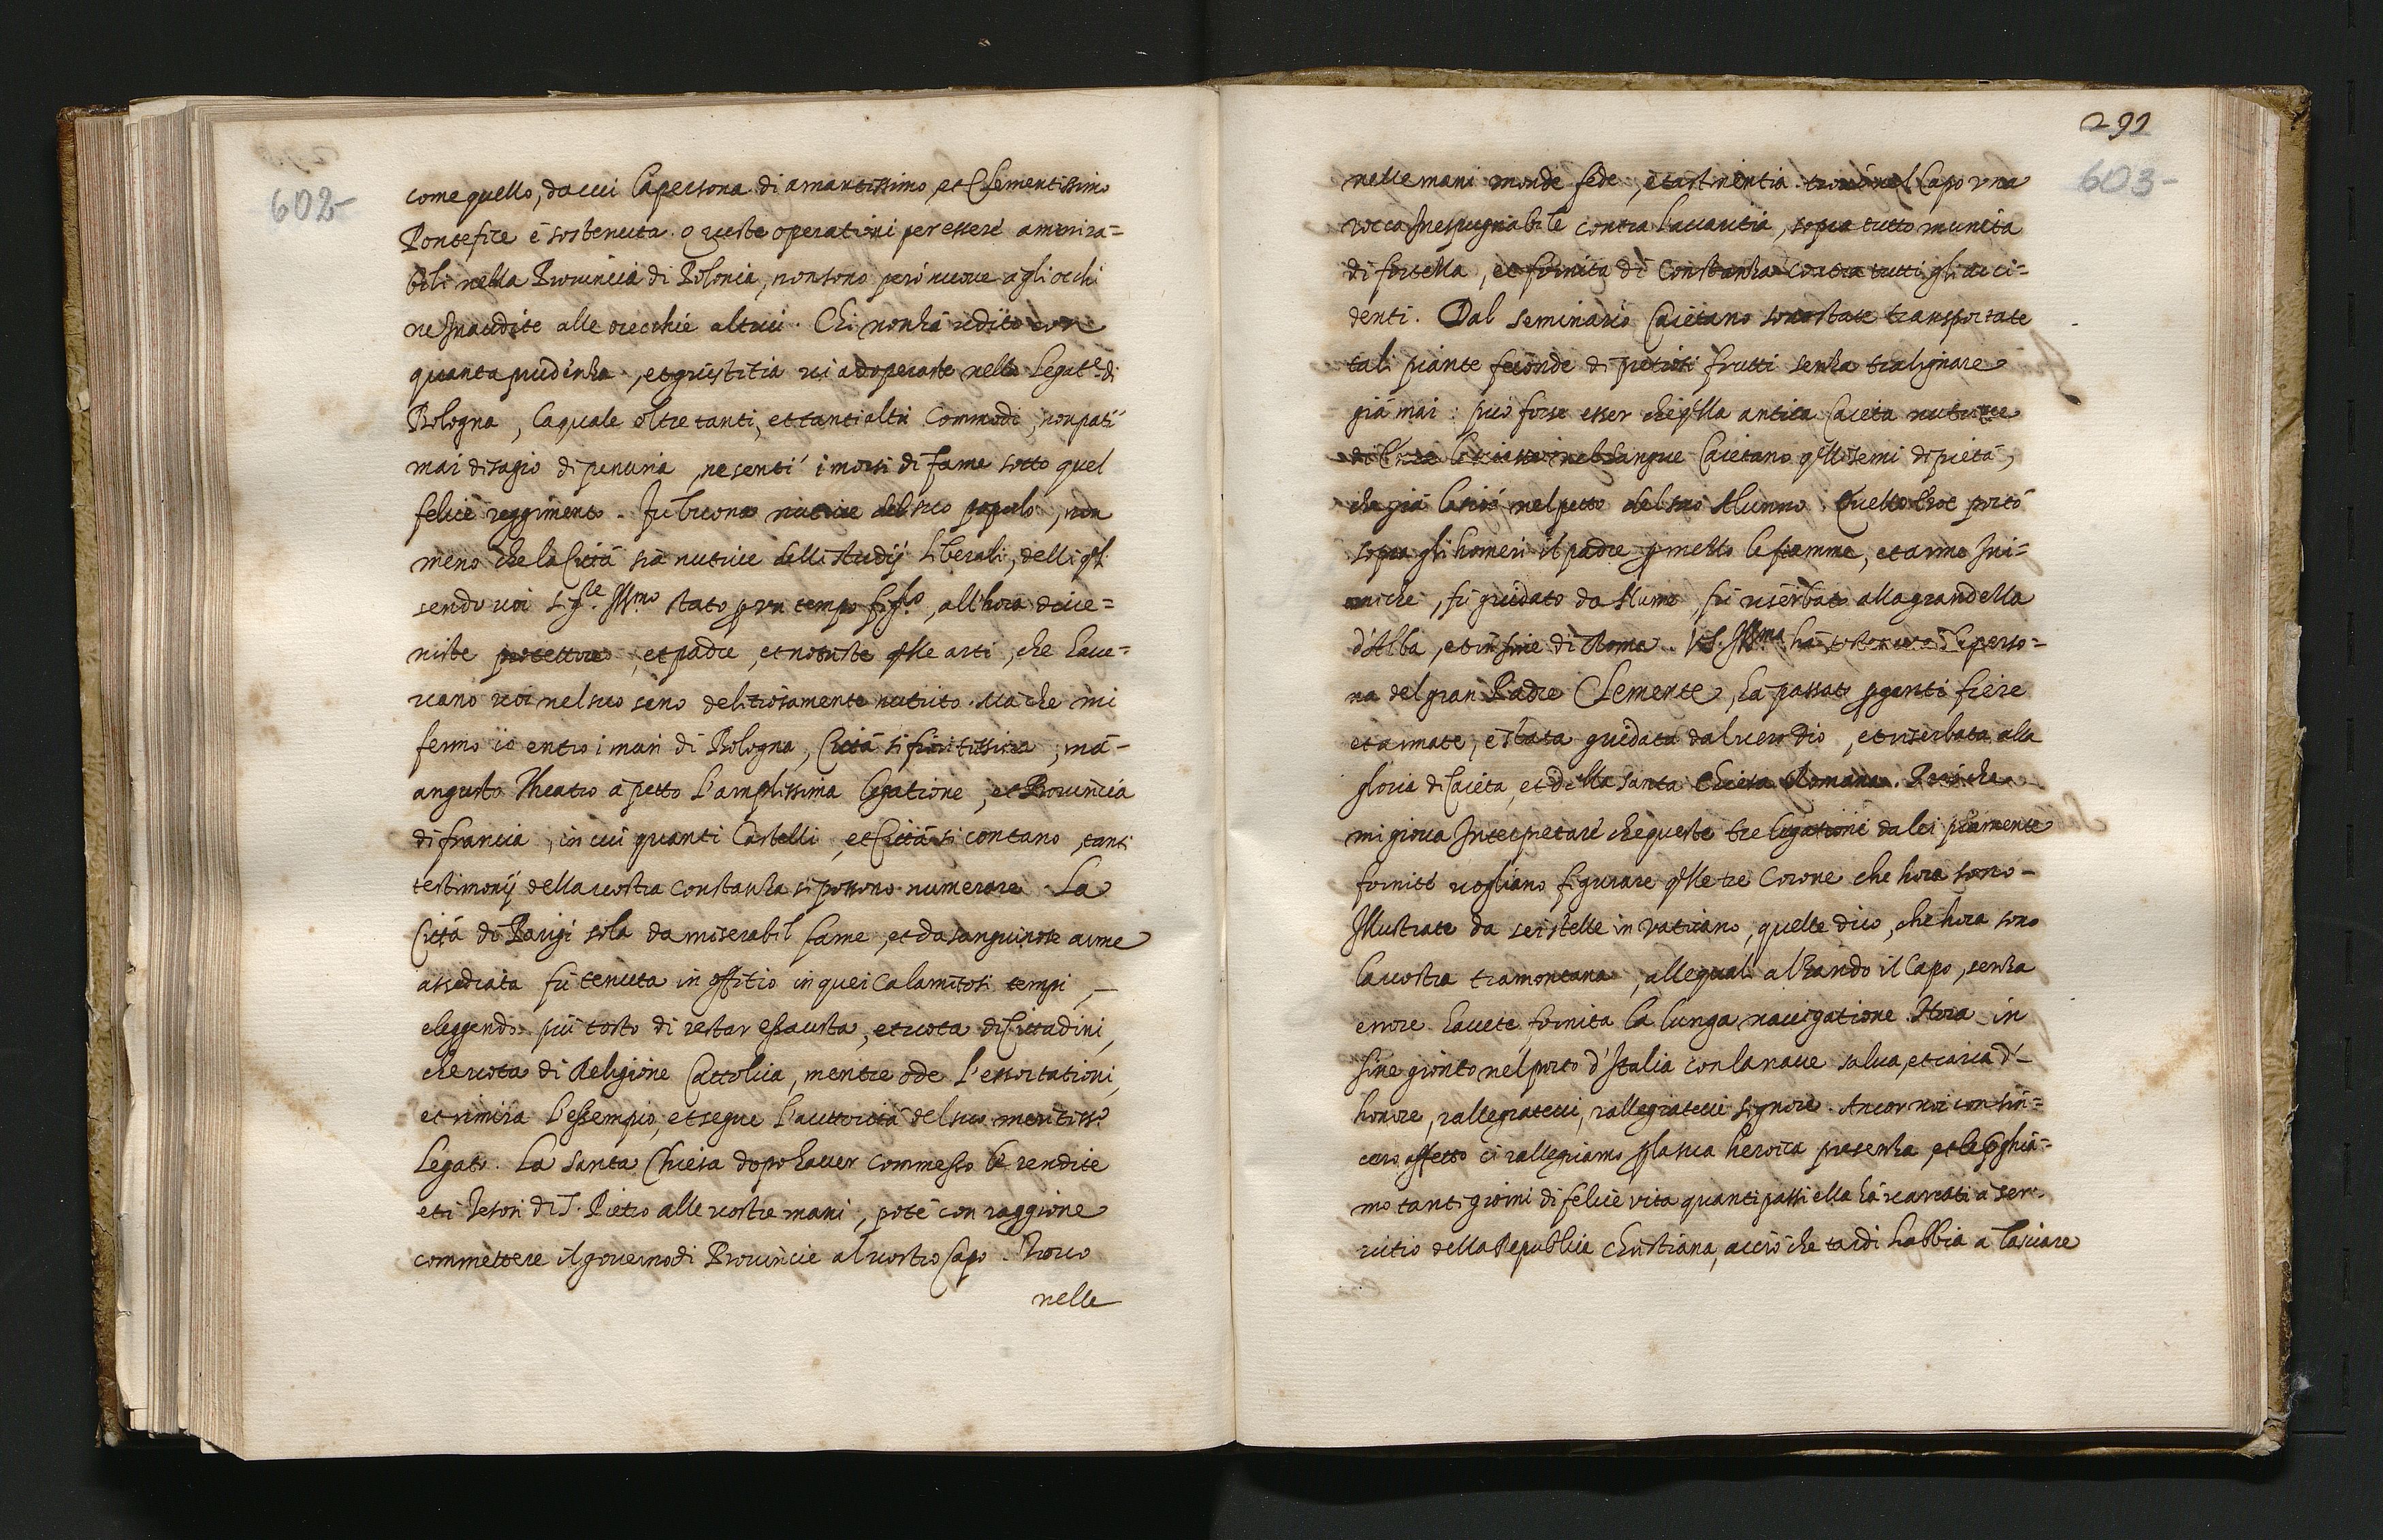 602
come quello, da cui la persona di amantissimo, et Clementissimo
Pontefice è sostenuta. queste operationi per essere ammira=
bili nella Provincia di Polonia, non sono però nuove a gli occhi
ne Inaudite alle orecchie altrui. Chi non hà udito con
quanta prudenza, et giustitia vi adoperaste nella Legat.e di
Bologna, la quale oltre tanti, et tanti altri commodi, non patì
mai disagio di penuria, ne sentì i morsi di fame sotto quel
felice reggimento. fu buona nutrice del suo popolo, non
meno che la Città sia nutrice delli studij liberali, delli q.li
sendo voi Sig.re Ill.mo stato p un tempo fig.lo, all'hora dive=
niste protettore, et padre, et notriste q.lle arti, che have=
vano voi nel suo seno delitiosamente nutrito. Ma che mi
fermo io entro i muri di Bologna, Città sì fioritissima, mà-
angusto Theatro a petto l'amplissima legatione, et Provincia
di francia, in cui quanti Castelli, et Città si contano, tanti
testimonij della vostra constanza si possono numerare. La
Città di Parigi sola da miserabil fame, et da sanguinose arme
assediata fù tenuta in offitio in quei calamitosi tempi,-
eleggendo più tosto di restar essausta, et vota di Cittadini,
che vota di Religione Cattolica, mentre ode l'essortationi,
et rimira l'essempio, et segue l'auttorità del suo meritiss.o
Legato. La Santa Chiesa dopo haver commesso le rendite
et i Tesori di S. Pietro alle vostre mani, potè con raggione
commettere il governo di Provincie al vostro Capo. Trovo
nelle
291
603
nelle mani monde fede, et astinentia. trovò nel Capo una
rocca Inespugnabile contra l'avaritia, sopra tutto munita
di fortezza, et fornita di Constanza contra tutti gli acci=
denti. Dal seminario Caietano sono state transportate
tali piante feconde di pretiosi frutti senza tralignare
già mai: può forse esser che q.lla antica Caieta nutrice
di Enea lasciasse nel sangue Caietano q.lli semi di pietà,
che già lasciò nel petto del suo Alunno. Quello Eroe portò
sopra gli homeri il padre p mezzo le fiamme, et arme Ini=
miche, fù guidato da Nume, fù riserbato alla grandezza
d'Alba, et in fine di Roma. V.S. Ill.ma hà la perso=
na del gran Padre Clemente, ha passato p genti fiere
et armate, è stata guidata dal vero Dio, et riserbata alla
gloria di Caieta, et della santa Chiesa Romana. Però che
mi giova Interpretare che queste tre legationi da lei piamente
fornite vogliano figurare q.lle tre Corone che hora sono-
Illustrate da sei stelle in Vaticano, quelle dico, che hora sono
la vostra tramontana, alle quali alzando il Capo, senza
errore havete fornita la lunga navigatione. Hora in
fine gionto nel porto d'Italia con la nave salva, et carica d'-
honore, rallegratevi, rallegratevi signore. Ancor noi con sin=
cero affetto ci rallegriamo p la sua heroica presenza, et le p̱ghia=
mo tanti giorni di felice vita quanti passi ella hà varcati a ser=
vitio della Republica christiana, acciò che tardi habbia a lasciare